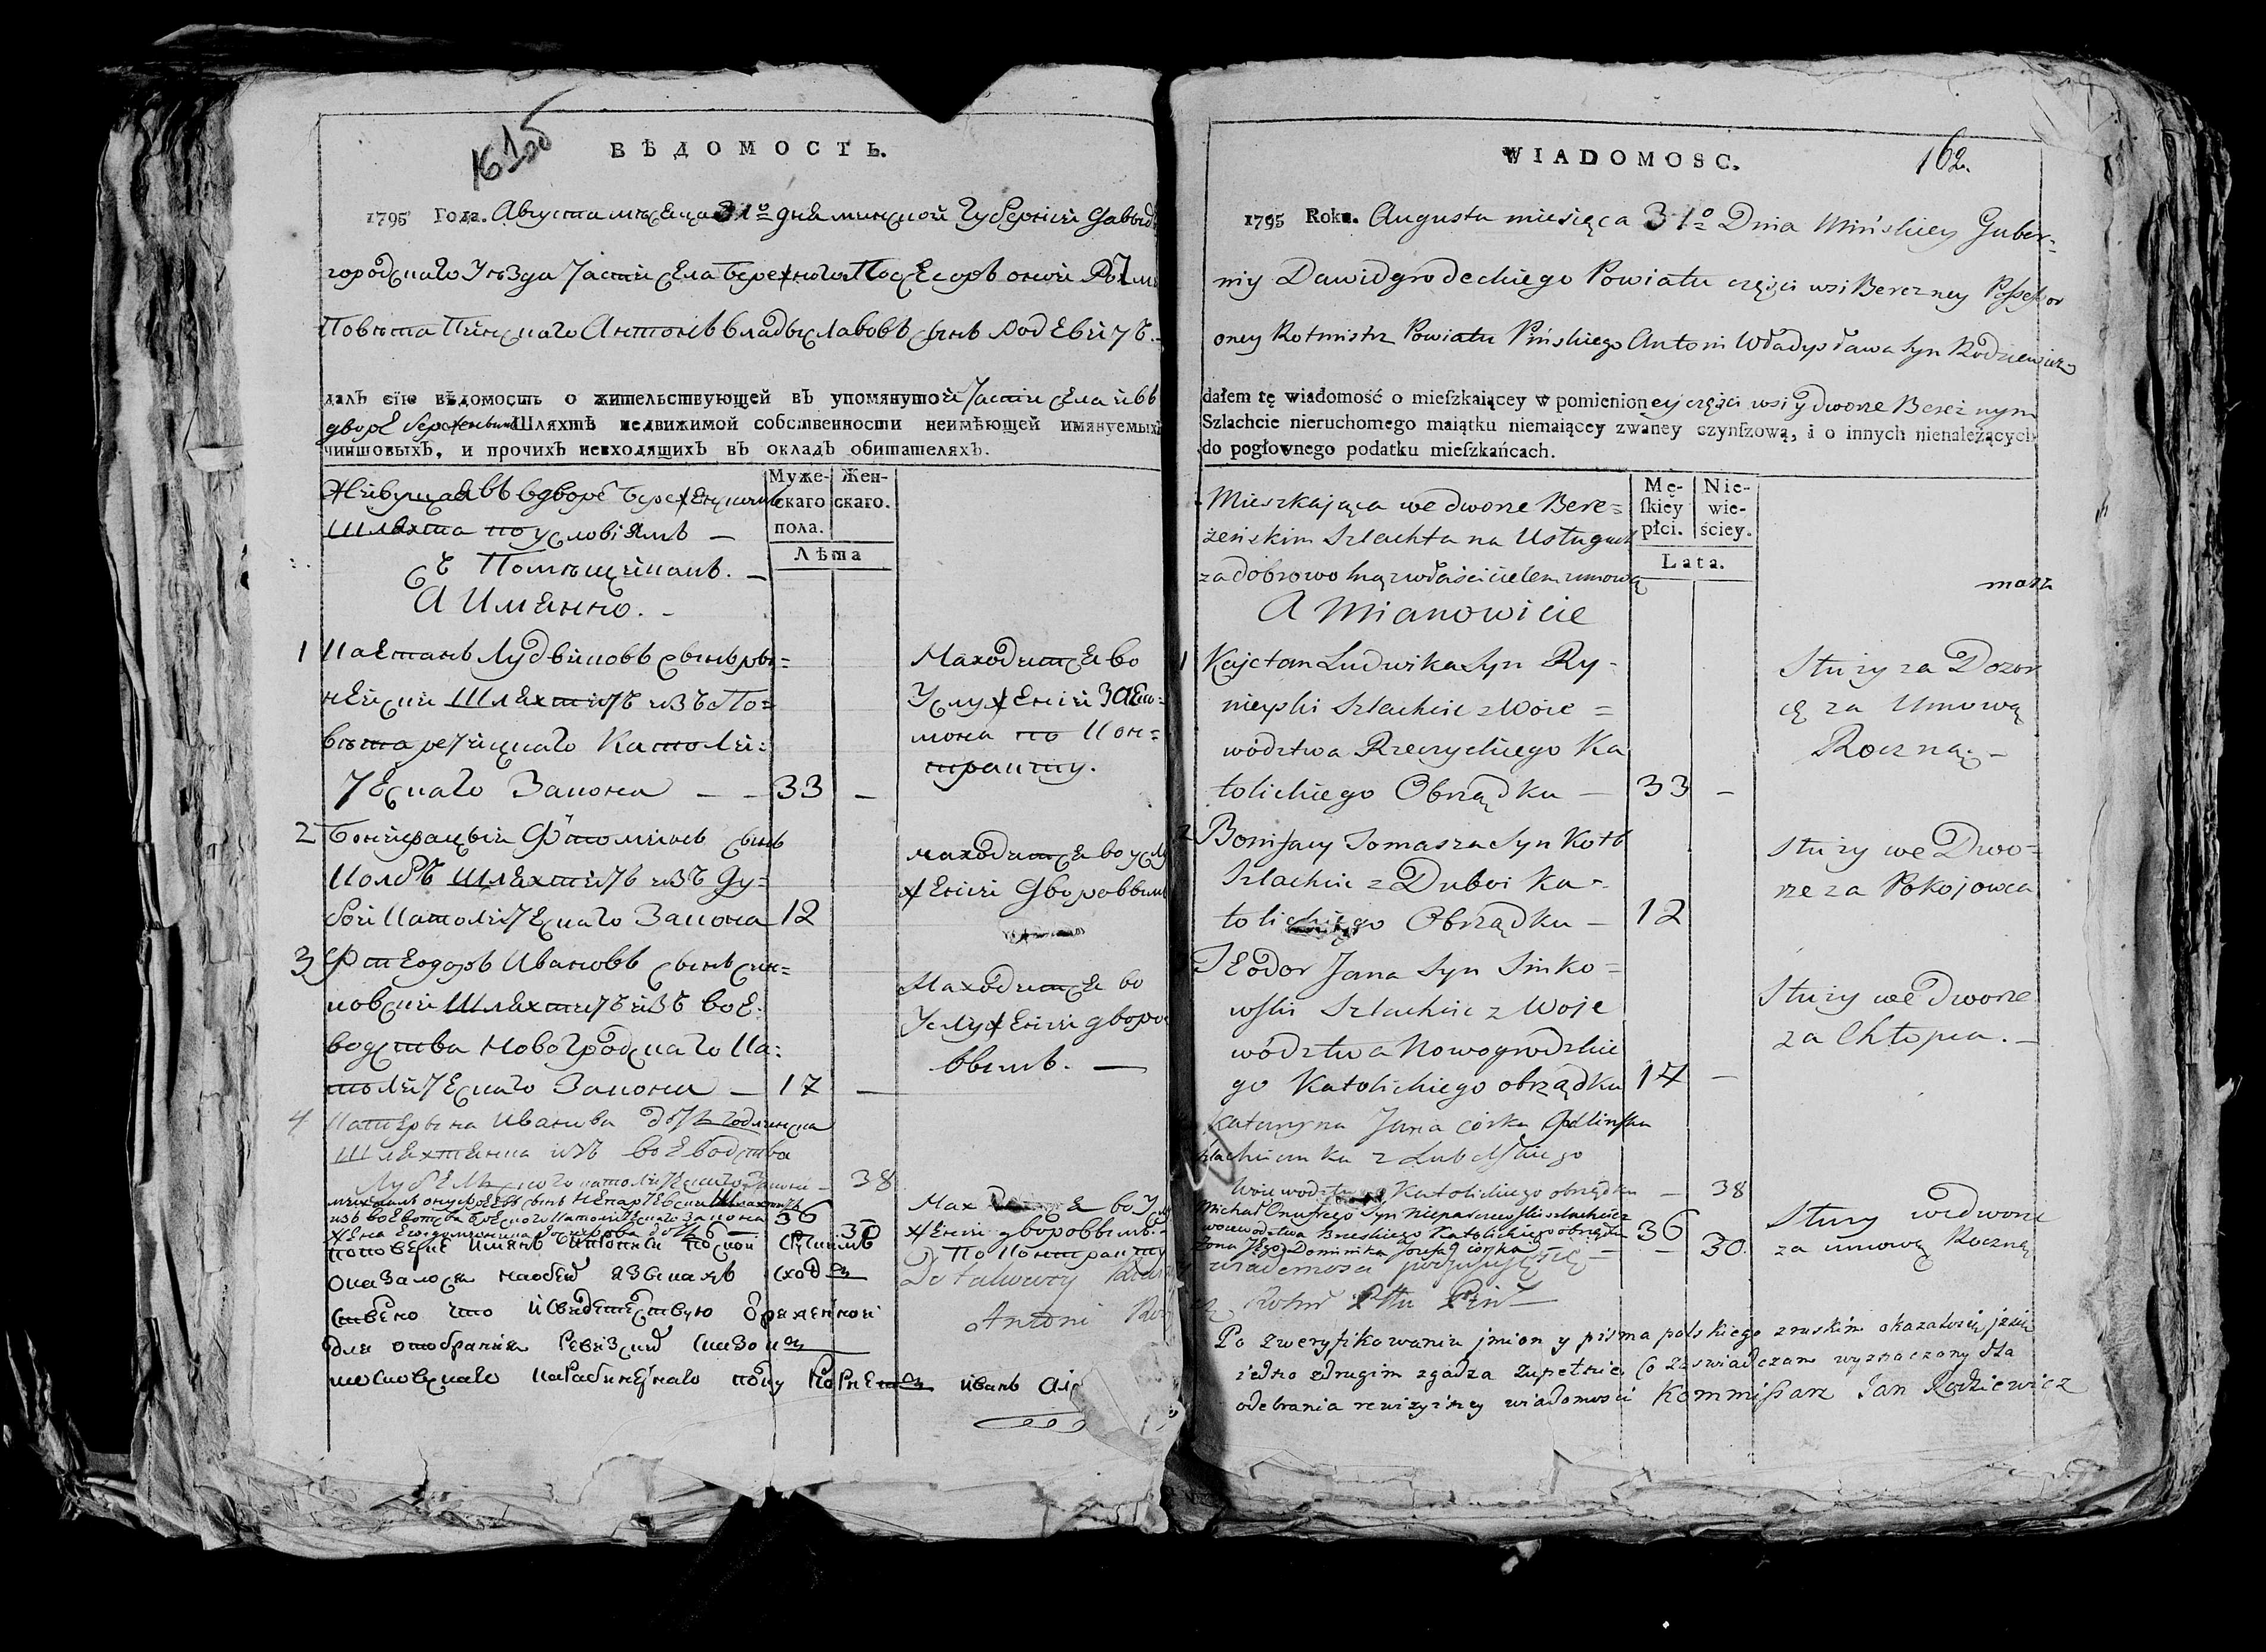 161об
ВѢДОМОСТЬ.
1795 Года. Августа мѣсяца 31º дня минской Губерніи Давыд
городскаго Уѣзда Части села Бережного Посесоръ оной Ротми
Повѣта Пинскаго Антонъ Владыславовъ сынъ Родзевичъ.
далъ сїю вѣдомость о жительствующей въ упомянутой Части села и въ
дворѣ Бережномъ Шляхтѣ недвижимой собственности неимѣющей имянуемыхъ
чиншовыхъ, и прочихъ невходящихъ въ окладъ обитателяхъ.
Муже- Жен-
скаго скаго.
пола.
Лѣта
Живущая въ дворѣ Бережен
Шляхта по условіямъ —
съ Помѣщикамъ. —
А Имянно. —
1 Каетанъ Лудвиковъ сынъ Ры=
нейский Шляхтичъ изъ По=
вѣта речицкаго Католи=
ческаго Закона — — 33 —
Находится во
Услужении
по Кон=
тракту.
2 Бонифаций Фтомиковъ сынъ
Колбъ Шляхтичъ изъ Ду=
бой Католическаго Закона 12
находится во услу
жении Дворовымъ
3 Фтеодоръ Ивановъ сынъ син=
ковский Шляхтичъ изъ вое=
водства Новогродскаго Ка=
толическаго Закона — 17 —
Находится во
Услужении дворо
вымъ. —
4 Катерына Иванова дочь годлинска
Шляхтянка изъ воеводства
Лубельского католическаго Закона — 38
36
30
жении дворовымъ. —
По Контракту
Antoni
по поверке имянъ
оказалося
что и свидетелствую
для отобрания Ревизских Сказокъ
Иванъ
WIADOMOSC. 162.
1795 Roku. Augusta miesięca 31º Dnia Mińskiey Guber=
niy Dawidgrodeckiego Powiatu części wsi Bereżney Possessor
oney Rotmistrz Powiatu Pińskiego Antoni Władysława Syn Rodziewicz
dałem tę wiadomość o mieſzkaiącey w pomienioney części wsi y dworze Bereżnym
Szlachcie nieruchomego maiątku niemaiącey zwaney czynſzową, i o innych nienależących
do pogłownego podatku mieſzkańcach.
Mę- Nie-
ſkiey wie-
płci. ściey.
Lata.
Mieszkająca we dworze Bere=
żeńskim Szlachta na Usługach
za dobrowolną z właścicielem umową
A Mianowicie
1 Kajetan Ludwika Syn Ry-
nieyski Szlachcic z Woie=
wództwa Rzeczyckiego Ka
tolickiego Obrządku — 33 —
Służy za Dozor
cę za Umową
Roczną. —
2 Bonifacy Tomasza Syn Kołb
Szlachcic z Duboi Ka=
tolickiego Obrządku — 12
Służy we Dwo=
rze za Pokojowca
Teodor Jana Syn Sinko=
wski Szlachcic z Woje
wództwa Nowogrodzkie
go Katolickiego obrządku 17 —
Służy we dworze
za Chłopca. —
Katarzyna Jana córka Godlinska
Szlachcianka z Lubelskiego
Woiewodztwa Katolickiego obrządku — 38
Michał Onufrego Syn Szlachcic
woiewodztwa Brzeskiego Katolickiego obrządku 36
Żona Jego Dominika Józefa córka — — 30.
Służy we dworze
za umową Roczną
wiadomości podpisuję się
Rotm Pttu Piń —
Po zweryfikowaniu jmion y pisma polskiego z ruskim okazało się jż
iedno z drugim zgadza zupełnie, Co zaświadczam wyznaczony dla
odebrania rewizyiney wiadomości Kommissarz Jan Rodziewicz